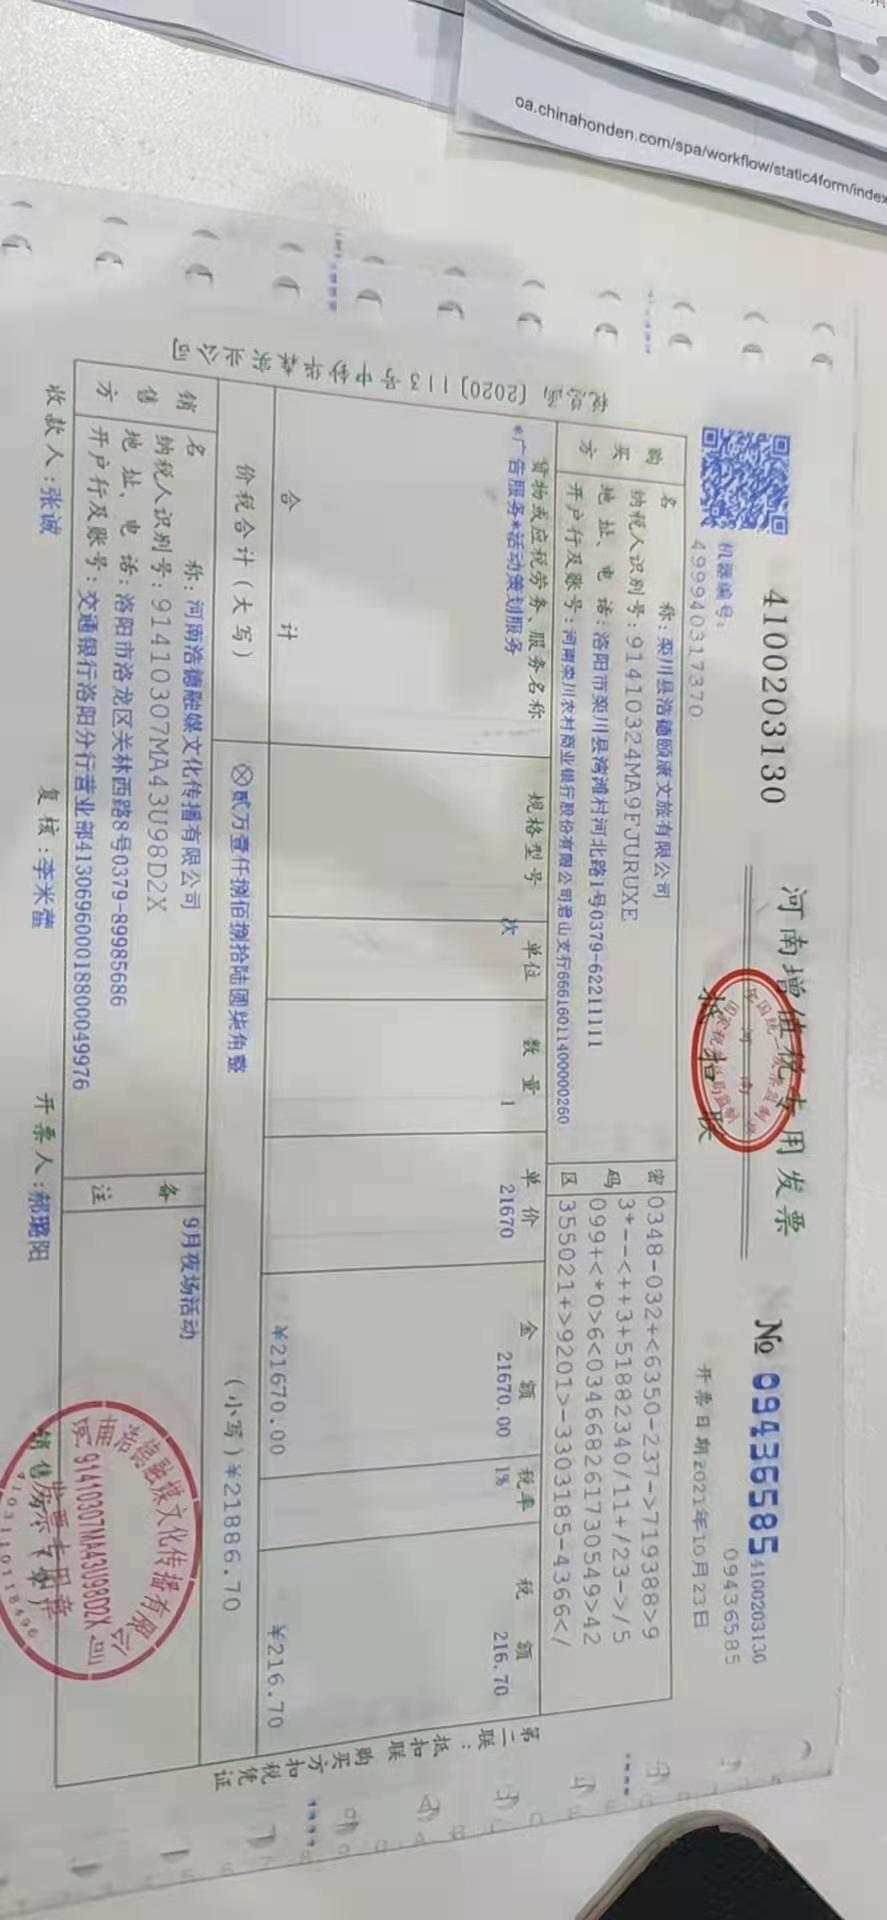 oa.chinahonden.com/spa/workflow/static4form/index
4100203130
河南增值税专用发票
№ 09436585
4100203130
09436585
抵扣联
机器编号:
499940317370
开票日期 2021年10月23日
购买方
名 称:栾川县浩德颐康文旅有限公司
纳税人识别号:91410324MA9FJURUXE
地 址、电 话:洛阳市栾川县湾滩村河北路1号0379-62211111
开户行及账号:河南栾川农村商业银行股份有限公司君山支行66616011400000260
密码区
0348-032+<6350-237->719388>9
3*--<++3+51882340/11+/23->/5
099+<*0>6<03466826173054​9>42
355021+>9201>-3303185-4366</
货物或应税劳务、服务名称 规格型号 单位 数量 单价 金额 税率 税额
*广告服务*活动策划服务 次 1 21670 21670.00 1% 216.70
合计 ¥21670.00 ¥216.70
价税合计(大写) ⊗贰万壹仟捌佰捌拾陆圆柒角整 (小写)¥21886.70
销售方
名 称:河南浩德融媒文化传播有限公司
纳税人识别号:91410307MA43U98D2X
地 址、电 话:洛阳市洛龙区关林西路8号0379-89985686
开户行及账号:交通银行洛阳分行营业部413069600018800049976
备注
9月夜场活动
收款人:张诚 复核:李米蕾 开票人:郝璐阳 销售方:(章)
河南浩德融媒文化传播有限公司
91410307MA43U98D2X
发票专用章
税总函[2020]113号中钞华森实业公司
第二联:抵扣联 购买方扣税凭证